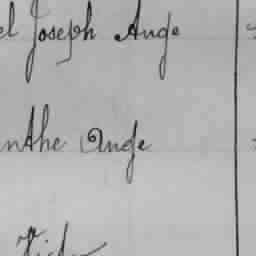 el Joseph Ange
nthe Ange